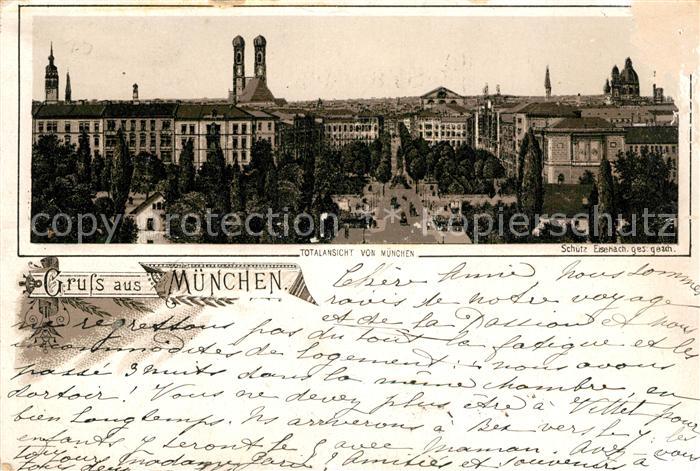 TOTALANSICHT VON MÜNCHEN
Schütz Eisenach. ges. gesch.
Gruſs aus MÜNCHEN.
copyright protection copyright protection
Chère Annie nous sommes
ravis de notre voyage
et de la Passion et nous
ne regrettons pas du tout la fatigue et les
incommodités de logement: nous avons
passé 3 nuits dans la même chambre en
dortoir! Vous ne devez plus être à Villet pour
bien longtemps. Ils arriverons à Bex vers le
enfants y seront avec maman. Avez-vous
toujours Madame Amitiés et souvenirs à
tous deux